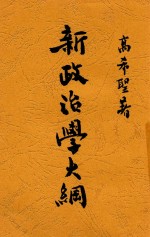 高希聖著
新政治學大綱